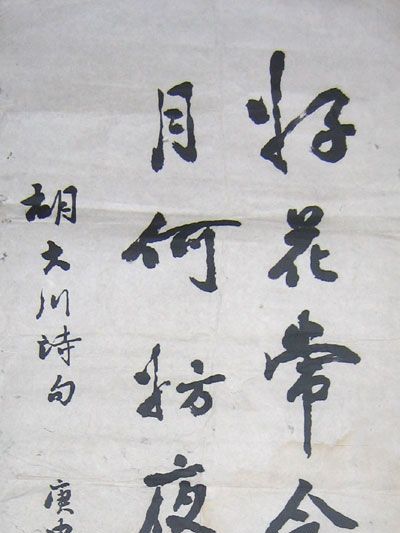 好花常令
月何妨夜
胡大川诗句
庚申